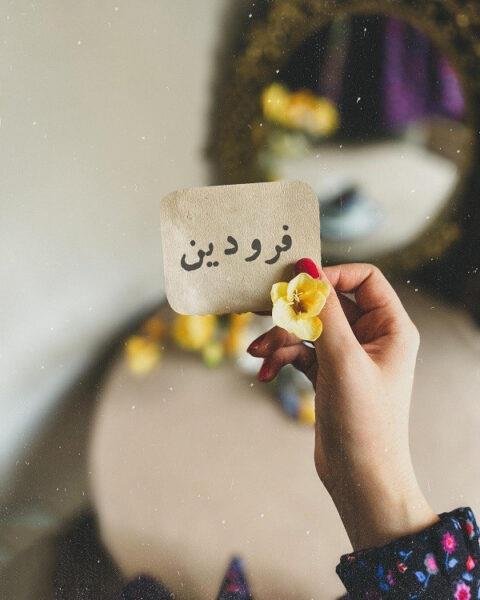 فرودین